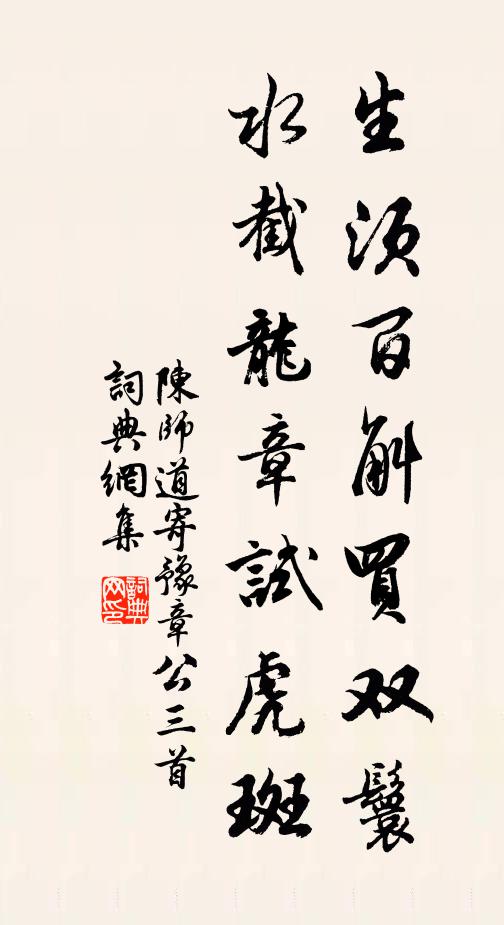 生須百斛買双鬟
水截龍章試虎斑
陳師道寄豫章公三首
詞典網集
詞典网印